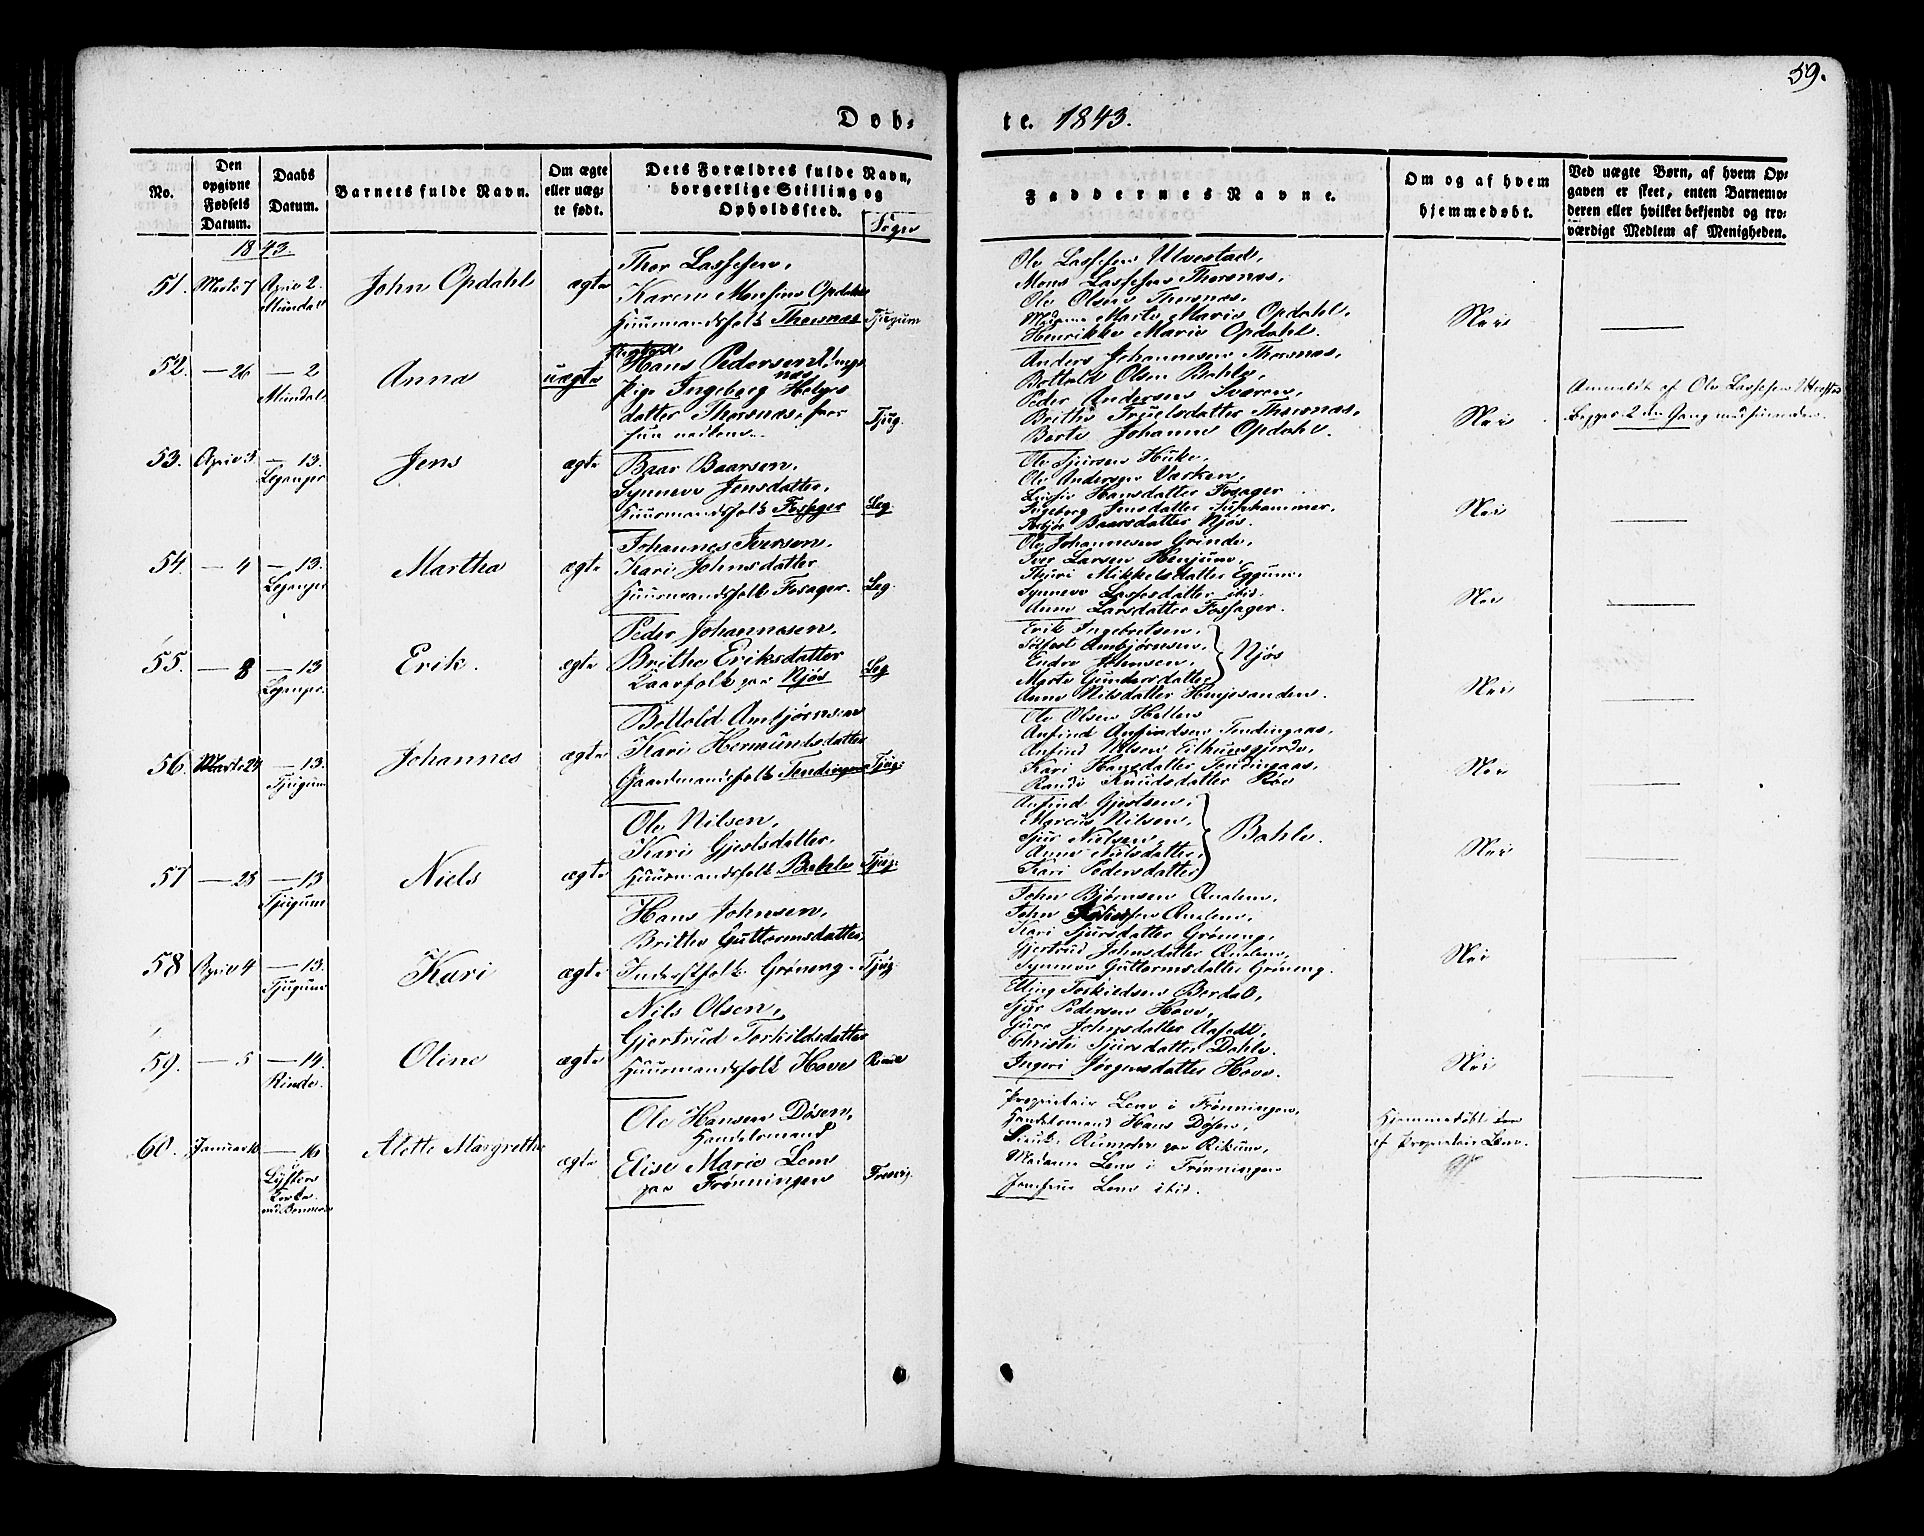 59.
Døb-
te. 1843.
No.
Den opgivne Fødsels Datum.
Daabs Datum.
Barnets fulde Navn.
Om ægte eller uæg-
te født.
Dets Forældres fulde Navn,
borgerlige Stilling og
Opholdssted.
Sogn
Faddernes Navne.
Om og af hvem
hjemmedøbt.
Ved uægte Børn, af hvem Op-
gaven er skeet, enten Barnemo-
deren eller hvilket bekjendt og tro-
værdigt Medlem af Menigheden.
1843.
51. Marts 7 April 2. Mundal
John Opdahl
ægte
Thor Lassesen,
Karen Monsine Opdahl
Huusmandsfolk Thorsnæs
Tjugum
Ole Lassesen Ulvestad,
Mons Lassesen Thorsnæs,
Ole Olsen Thorsnæs,
Madame Marte Marie Opdahl,
Henrikke Marie Opdahl.
Nei
52. — 26 — 2 Mundal
Anna
uægte
Hans Pedersen
Pige Ingeborg Helges
datter Thorsnæs,
Tjug.
Anders Johannesen Thorsnæs,
Bottold Olsen Bahle,
Peder Andersen Sværen,
Brithe Truelsdatter Thorsnæs,
Berte Johanne Opdahl.
Nei
Anmeldt af Ole Lassesen Ulvestad
Begges 2den Gang
53. April 3. — 13. Leganger
Jens
ægte
Baar Baarsen,
Synneve Jensdatter,
Huusmandsfolk Fosager
Leg.
Ole Sjursen Huke,
Ole Andersen
Hansdatter Fosager
Ingeborg Jensdatter
Baarsdatter Njøs.
Nei
54. — 4 — 13. Leganger
Martha
ægte
Johannes Iversen,
Kari Johnsdatter
Huusmandsfolk Fosager.
Leg.
Ole Johannesen Grinde,
Iver Larsen Henjum,
Thuri Mikkelsdatter Eggum,
Synneve Lassesdatter ibid.
Anne Larsdatter Fosager.
Nei
55. — 8 — 13 Leganger
Erik.
ægte
Peder Johannesen,
Brithe Eriksdatter
Kaarfolk paa Njøs
Leg
Erik Ingebretsen,
Solfest Ambjørnsen,
Endre Johnsen,
Marte Gundersdatter
Njøs
Anne Nilsdatter Henjesanden.
Nei
56. Marts 24 — 13. Tjugum
Johannes
ægte
Bottold Ambjørnsen
Kari Hermundsdatter
Gaardmandsfolk Tendingaas
Tjug:
Ole Olsen Hellen
Anfind Anfindsen Tendingaas,
Anfind Nilsen
Kari Hansdatter Tendingaas,
Randi Knudsdatter Røv
Nei
57 — 23 — 13 Tjugum
Niels
ægte
Ole Nilsen,
Kari Gjestsdatter,
Huusmandsfolk Bahle
Tjug:
Anfind Gjestsen,
Marcus Nilsen,
Sjur Nielsen,
Anne Nilsdatter,
Kari Pedersdatter
Bahle.
Nei
58 April 4 — 13. Tjugum
Kari
ægte
Hans Johnsen,
Brithe Guttormsdatter,
Inderstfolk Grøneng
Tjug:
John Bjørnsen Qualem,
John Qualem,
Kari Sjursdatter Grøneng,
Gjertrud Johnsdatter Qualem,
Synneve Guttormsdatter Grøneng.
Nei
59. — 5 — 14 Rinde.
Oline
ægte
Nils Olsen,
Gjertrud Torkildsdatter
Huusmandsfolk Hove
Rinde
Elling Torkildsen Berdal,
Sjur Pedersen Hove,
Guro Johnsdatter Aafedt,
Christi Sjursdatter Dahle.
Ingeri Jørgensdatter Hove.
Nei
60. Januar 16 — 16
Lyster
Alette Margrethe
ægte
Ole Hansen Døsen,
Handelsmand
Elise Marie Lem
paa Frønningen
Fresvig.
Proprietair Lem i Frønningen,
Handelsmand Hans Døsen,
Rumohr paa Rikum,
Madame Lem i Frønningen
Jomfrue Lem ibid.
Hjemmedøbt
af Proprietair Lem.